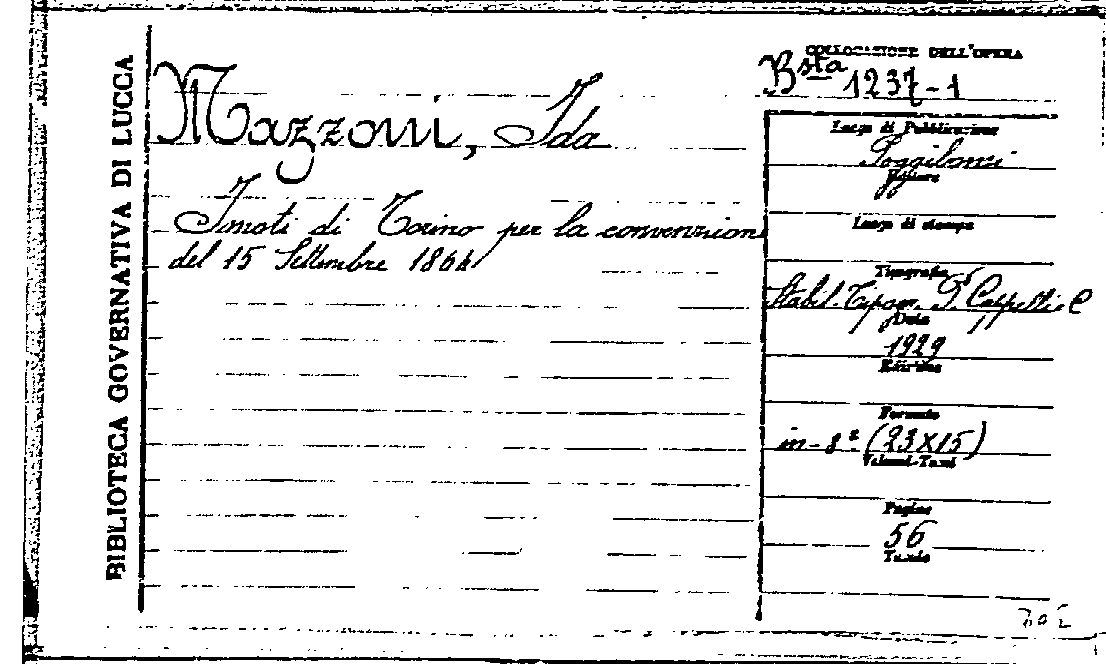 BIBLIOTECA GOVERNATIVA DI LUCCA
Mazzoni, Ida
I moti di Torino per la convenzione
del 15 Settembre 1864
COLLOCAZIONE DELL'OPERA
Bsta 1237-1
Luogo di Pubblicazione
Poggibonsi
Editore
Luogo di stampa
Tipografia
Stabil. Tipogr. Cappelli e C
Data
1929
Edizione
Formato
in-8º (23X15)
Volumi-Tomi
Pagine
56
Tavole